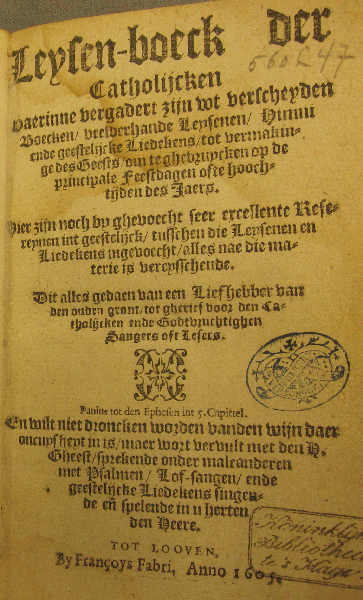 Leysen-boeck der
560 L 47
Catholijcken
Daerinne vergadert zijn wt verscheyden
Boecken / veelderhande Leysenen / Himni
ende geestelijcke Liedekens / tot vermakin-
ge des Geests / om te ghebruycken op de
principale Feestdagen ofte hooch-
tijden des Jaers.
Hier zijn noch by ghevoecht seer excellente Refe-
reynen int geestelijck / tusschen die Leysenen en
Liedekens ingevoecht / alles nae die ma-
terie is vereysschende.
Dit alles gedaen van een Liefhebber van
den ouden gront / tot gherief door den Ca-
tholijcken ende Godtvruchtighen
Sangers oft Lesers.
Paulus tot den Ephesen int 5. Capittel.
En wilt niet droncken worden vanden wijn daer
oncuysheyt in is / maer wort vervult met den H.
Gheest / sprekende onder malcanderen
met Psalmen / Lof-sangen / ende
geestelijcke Liedekens singen-
de eñ spelende in u herten
den Heere.
TOT LOOVEN,
By Françoys Fabri, Anno 1605.
Koninklijke
Bibliotheek
te 's Hage